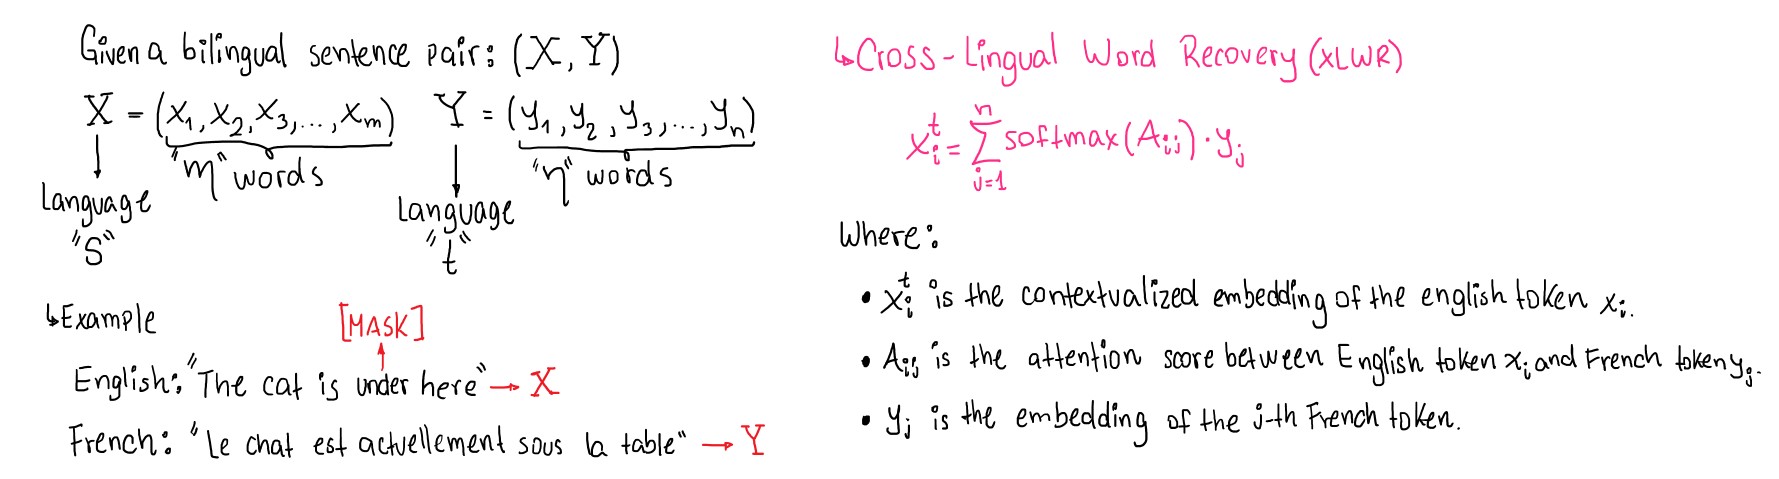 Given a bilingual sentence pair: (X, Y)
X = (x₁, x₂, x₃, ..., xₘ) Y = (y₁, y₂, y₃, ..., yₙ)
"m" words "n" words
Language "S"
Language "t"
↳Example
[MASK]
English: "The cat is under here" → X
French: "Le chat est actuellement sous la table" → Y
↳Cross-Lingual Word Recovery (XLWR)
xᵢᵗ = ∑ⱼ₌₁ⁿ softmax(Aᵢⱼ) · yⱼ
Where:
• xᵢᵗ is the contextualized embedding of the english token xᵢ.
• Aᵢⱼ is the attention score between English token xᵢ and French token yⱼ.
• yⱼ is the embedding of the j-th French token.